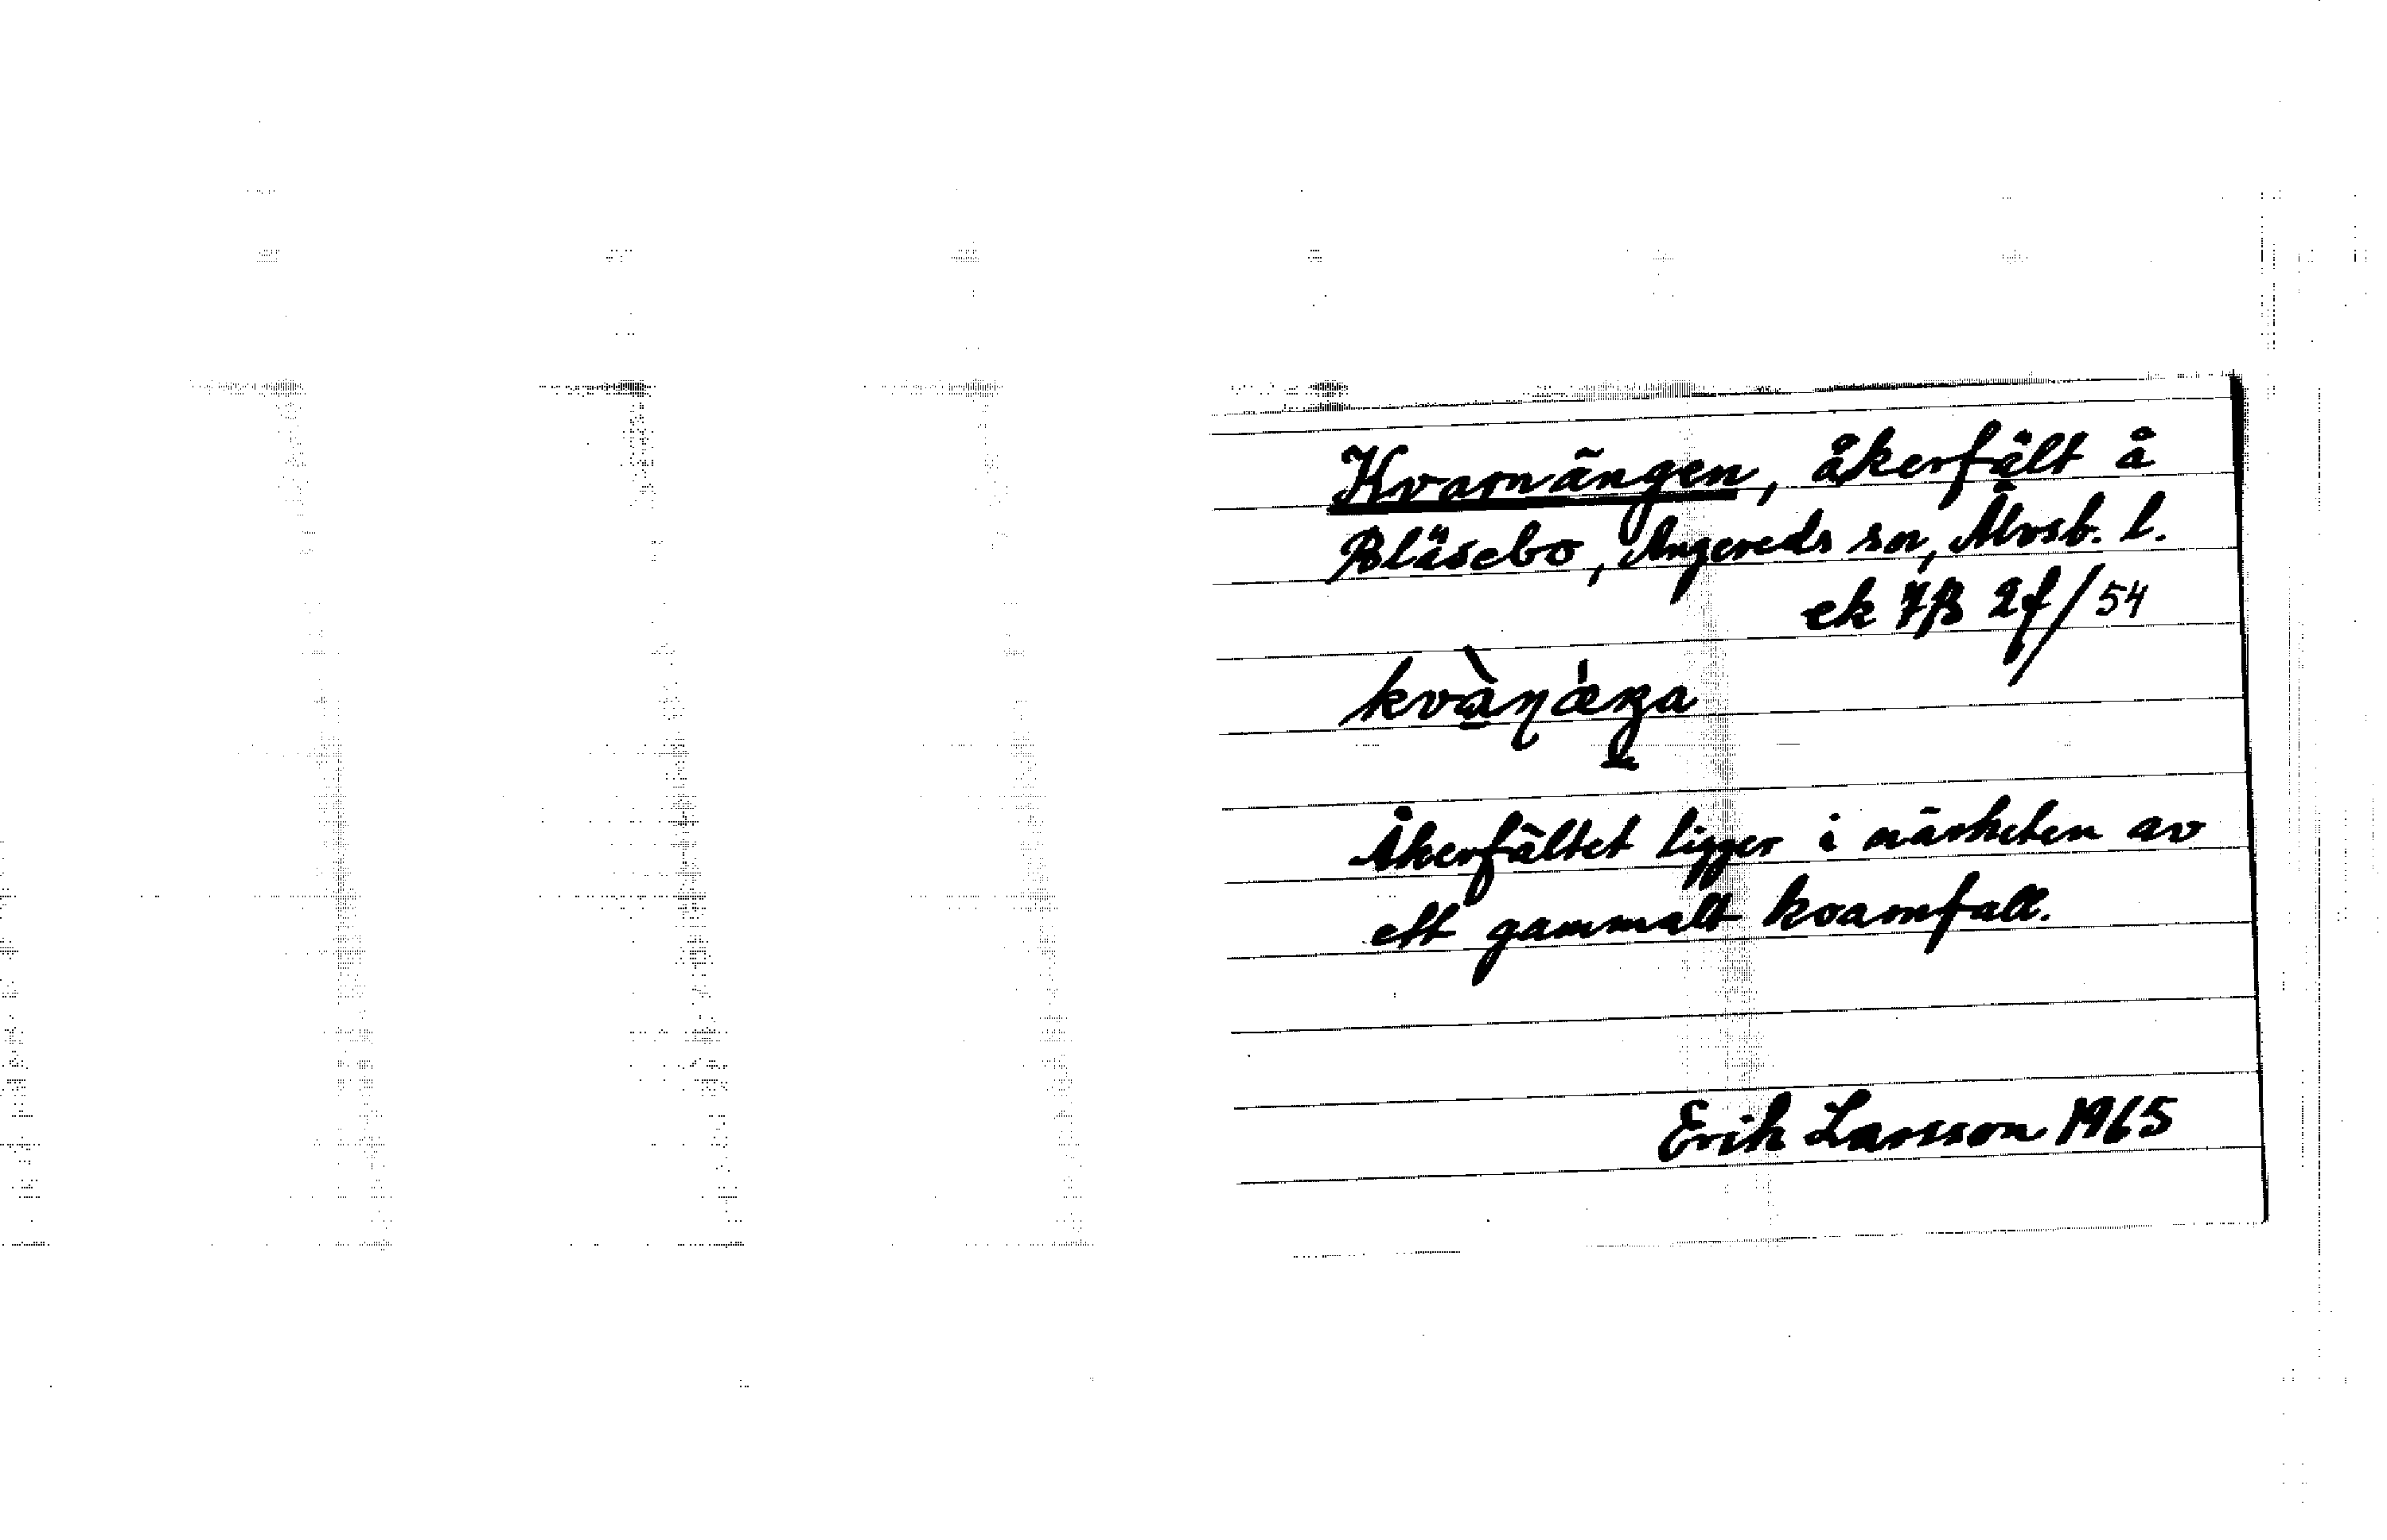 Kvarnängen, åkerfält å
Bläsebo, Angereds sn, Älvsb. l.
ek 7B 2f/54
Åkerfältet ligger i närheten av
ett gammalt kvarnfall.
Erik Larsson 1965